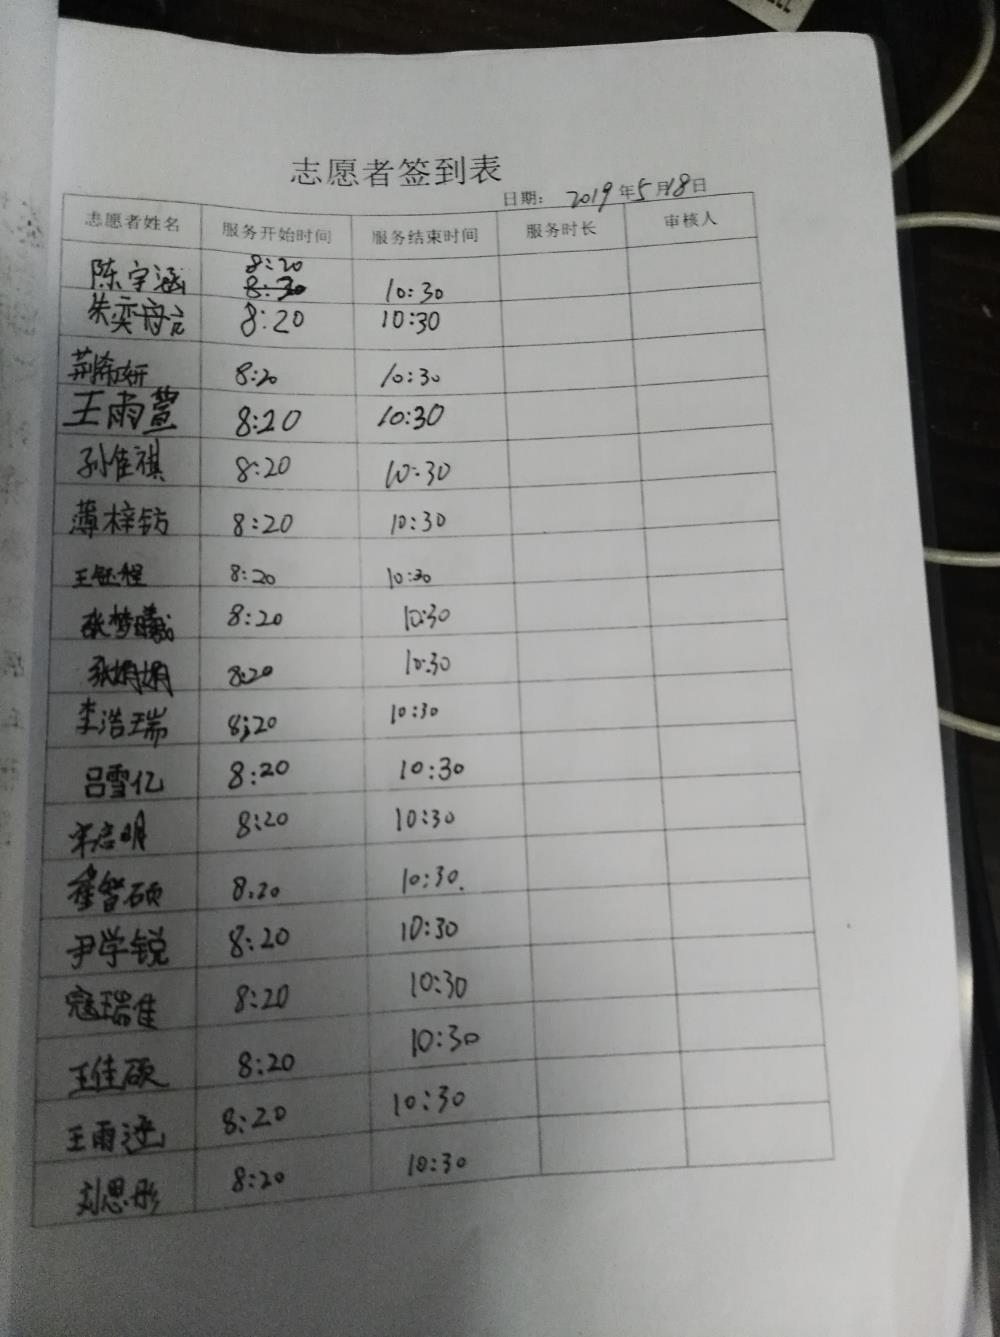 志愿者签到表
日期: 2019年5月18日
志愿者姓名 服务开始时间 服务结束时间 服务时长 审核人
8:20
陈宇涵 8:30 10:30
朱奕 8:20 10:30
荆希妍 8:20 10:30
王雨萱 8:20 10:30
孙佳祺 8:20 10:30
薄梓钫 8:20 10:30
王钰程 8:20 10:30
张梦曦 8:20 10:30
张娟娟 8:20 10:30
李浩瑞 8:20 10:30
吕雪亿 8:20 10:30
宋启明 8:20 10:30
程智硕 8:20 10:30
尹学锐 8:20 10:30
寇瑞佳 8:20 10:30
王佳硕 8:20 10:30
王雨 8:20 10:30
刘思彤 8:20 10:30